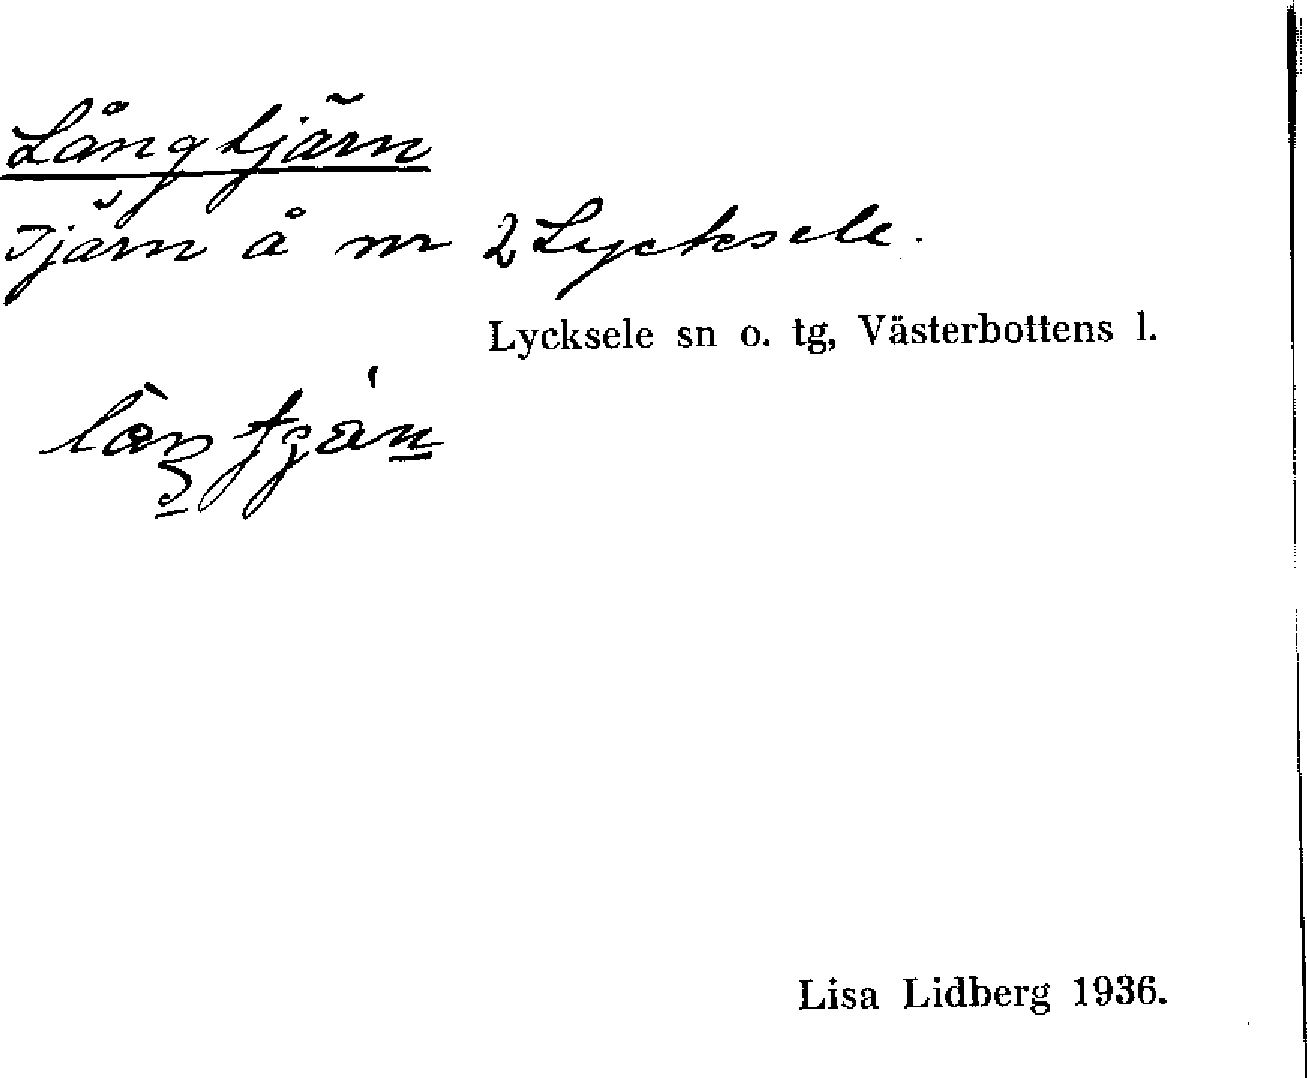 Långtjärn
Tjärn å nr 2 Lycksele.
Lycksele sn o. tg, Västerbottens l.
Lisa Lidberg 1936.